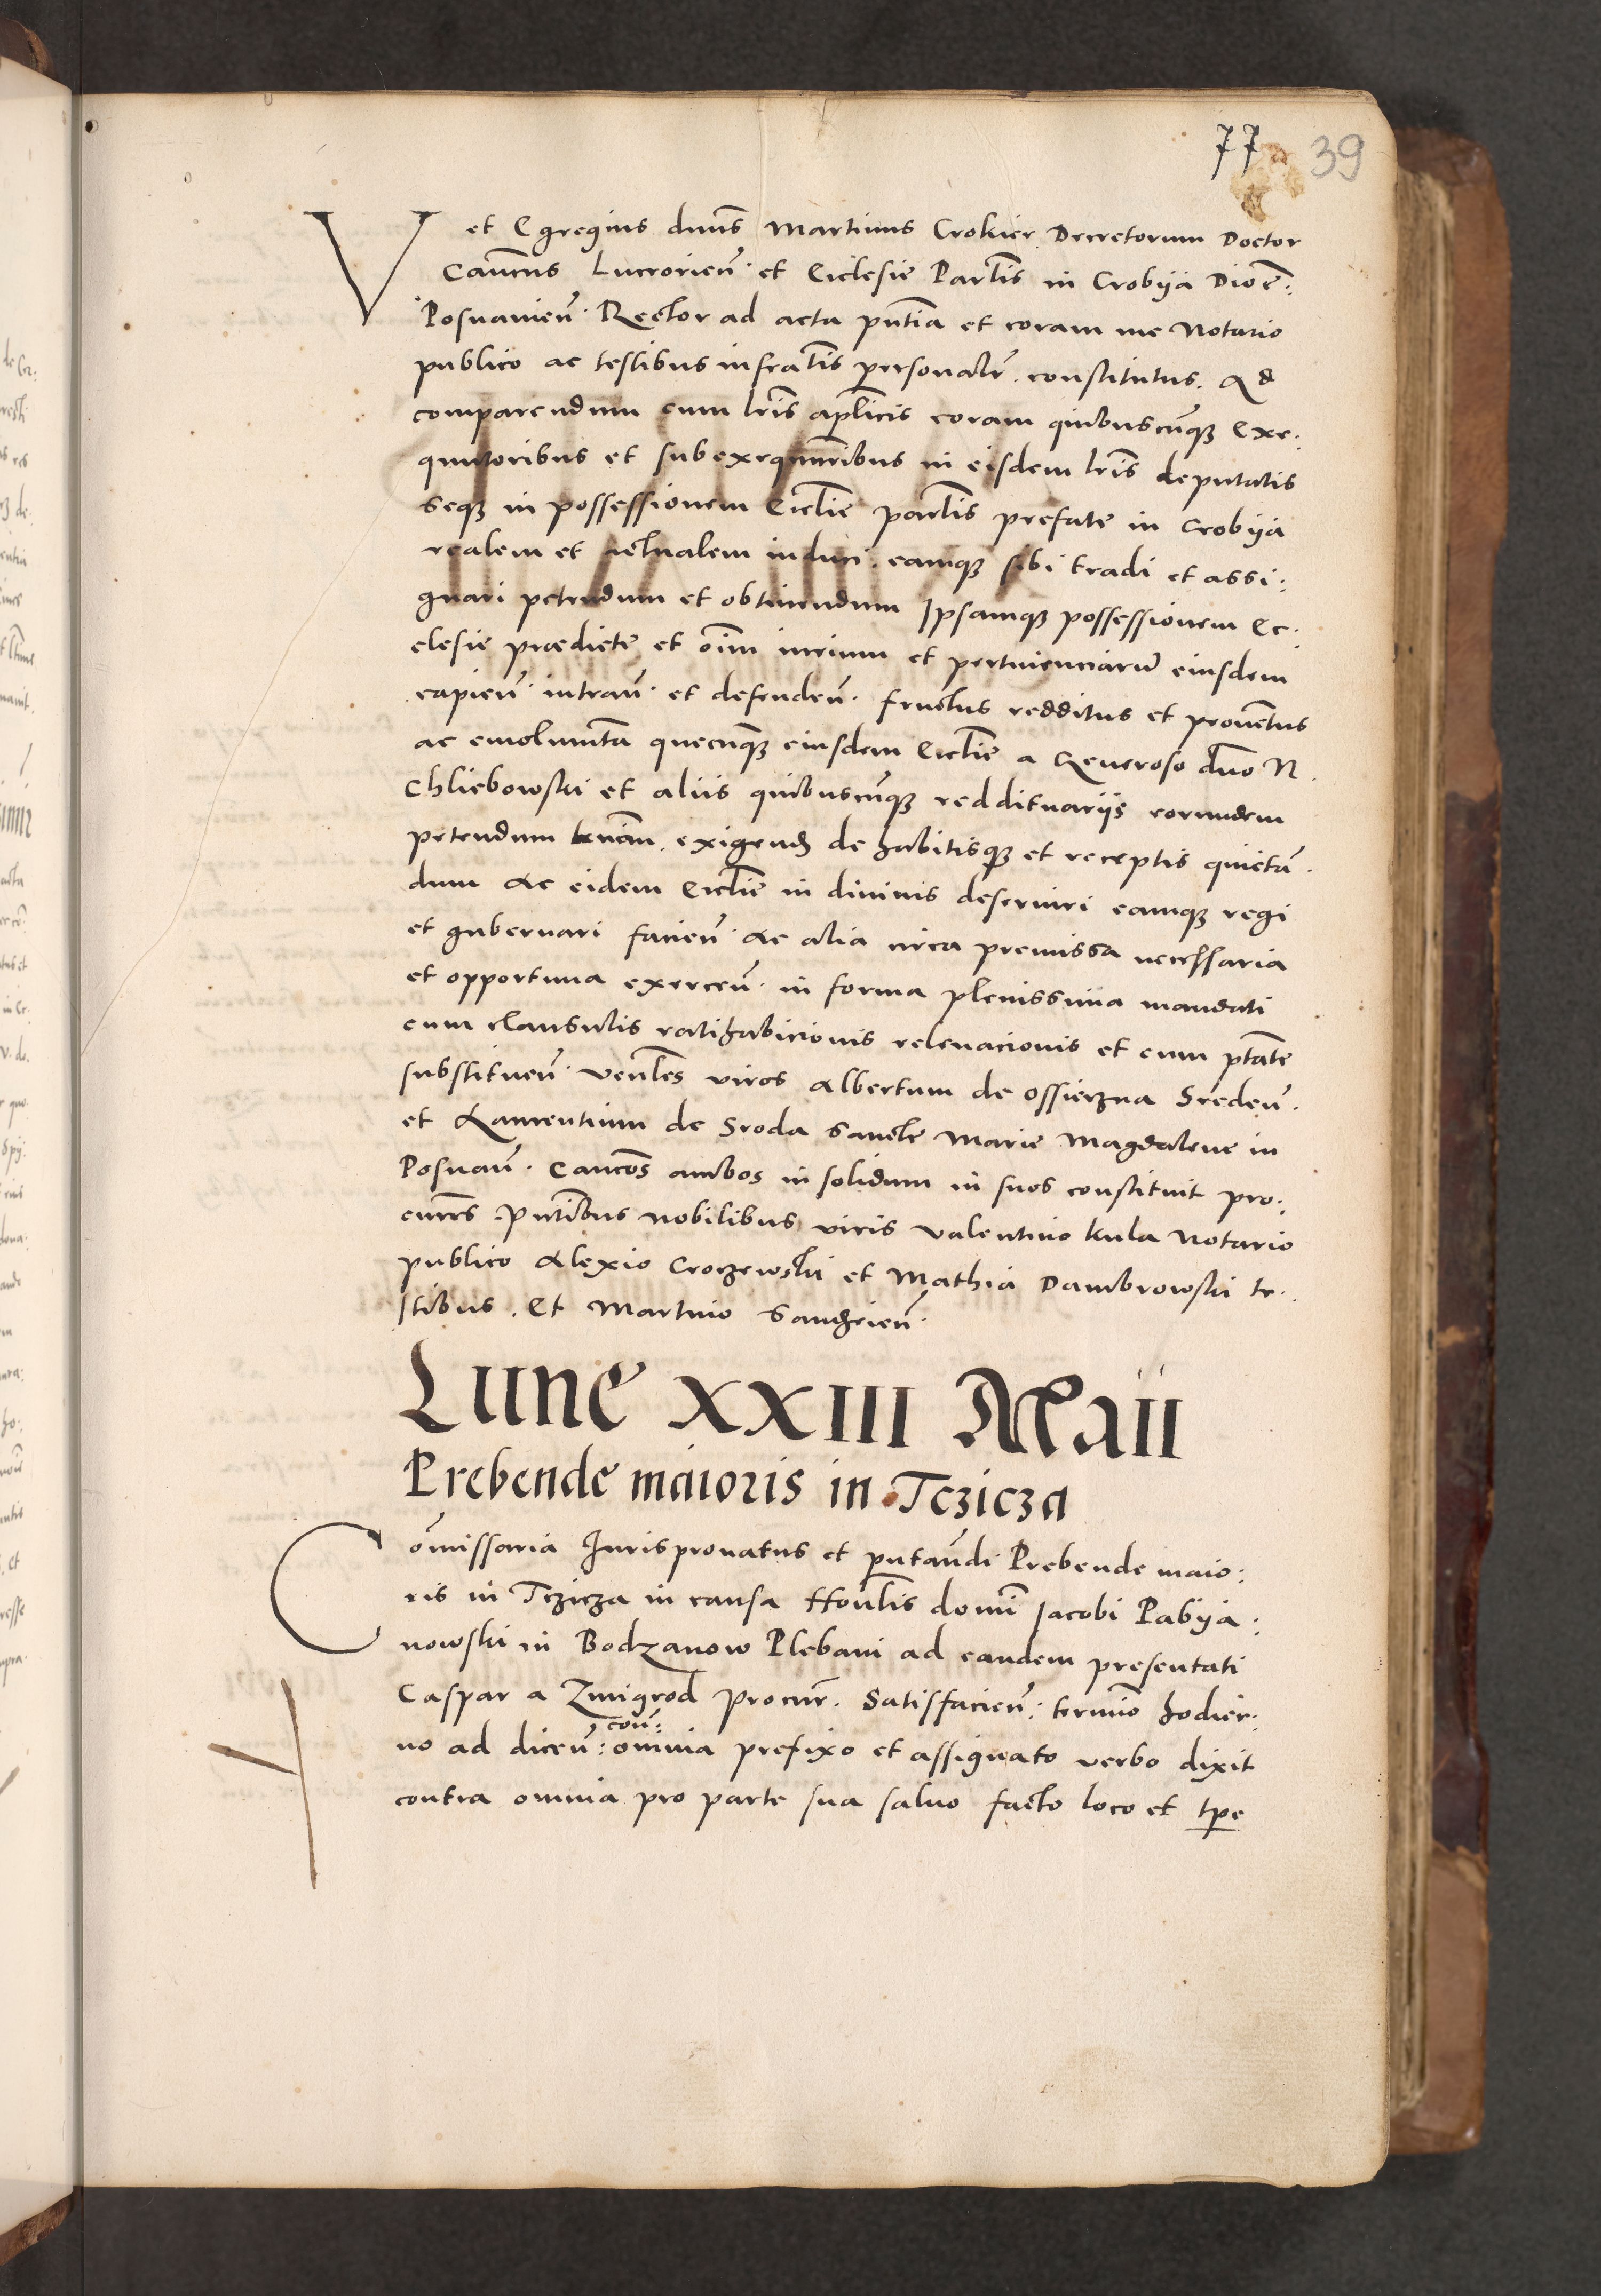 77 39
V et Egregius dnus Martinus Crokier Decretorum Doctor
Canucus Lucorien. et Ecclesie Parlis in Crobya Dioc:
Posnanien. Rector ad acta pntia et coram me Notario
publico ac testibus infratis personalr. constitutus. Ad
comparendum cum lris aplicis coram quibuscunq Exe.
quutoribus et subexequutoribus in eisdem lris deputatis
seq in possessionem Ecclie parlis prefate in Crobya
realem et actualem induci. eamq sibi tradi et assi:
gnari petendum et obtinendum Ipsamq possessionem Ec.
clesie praedicte et oim iurium et pertinenciarum eiusdem
capien. intran. et defenden. fructus redditus et proventus
ac emolumta quecunq eiusdem Ecclie a Generoso dno N.
Chliebowski et aliis quibuscunq reddituariis eorumdem
petendum exigend de habitisq et receptis quietan.
dum Ac eidem Ecclie in divinis deserviri eamq regi
et gubernari facien. Ac alia circa premissa necessaria
et opportuna exercen. in forma plenissima mandati
cum clausulis ratihabicionis relevacionis et cum ptate
substituen. Venles viros Albertum de Ossieczna Sreden.
et Laurentium de Sroda Sancte Marie Magdalene in
Posnan. Cancos ambos in solidum in suos constituit pro:
cures. Pntibus nobilibus viris Valentino Kula Notario
publico Alexio Croczewski et Mathia Dambrowski te.
stibus. Et Martino Sandzien.
Lune XXIII Maii
Prebende maioris in Tczicza
Comissaria Jurispronatus et pntandi Prebende maio:
ris in Tczicza in causa Honlis domi Jacobi Pabya:
nowski in Bodzanow Plebani ad eandem presentati
Caspar a Zmigrod procur. Satisfacien: termio hodier.
con:
no ad dicen: omnia prefixo et assignato verbo dixit
contra omnia pro parte sua salvo facto loco et tpe